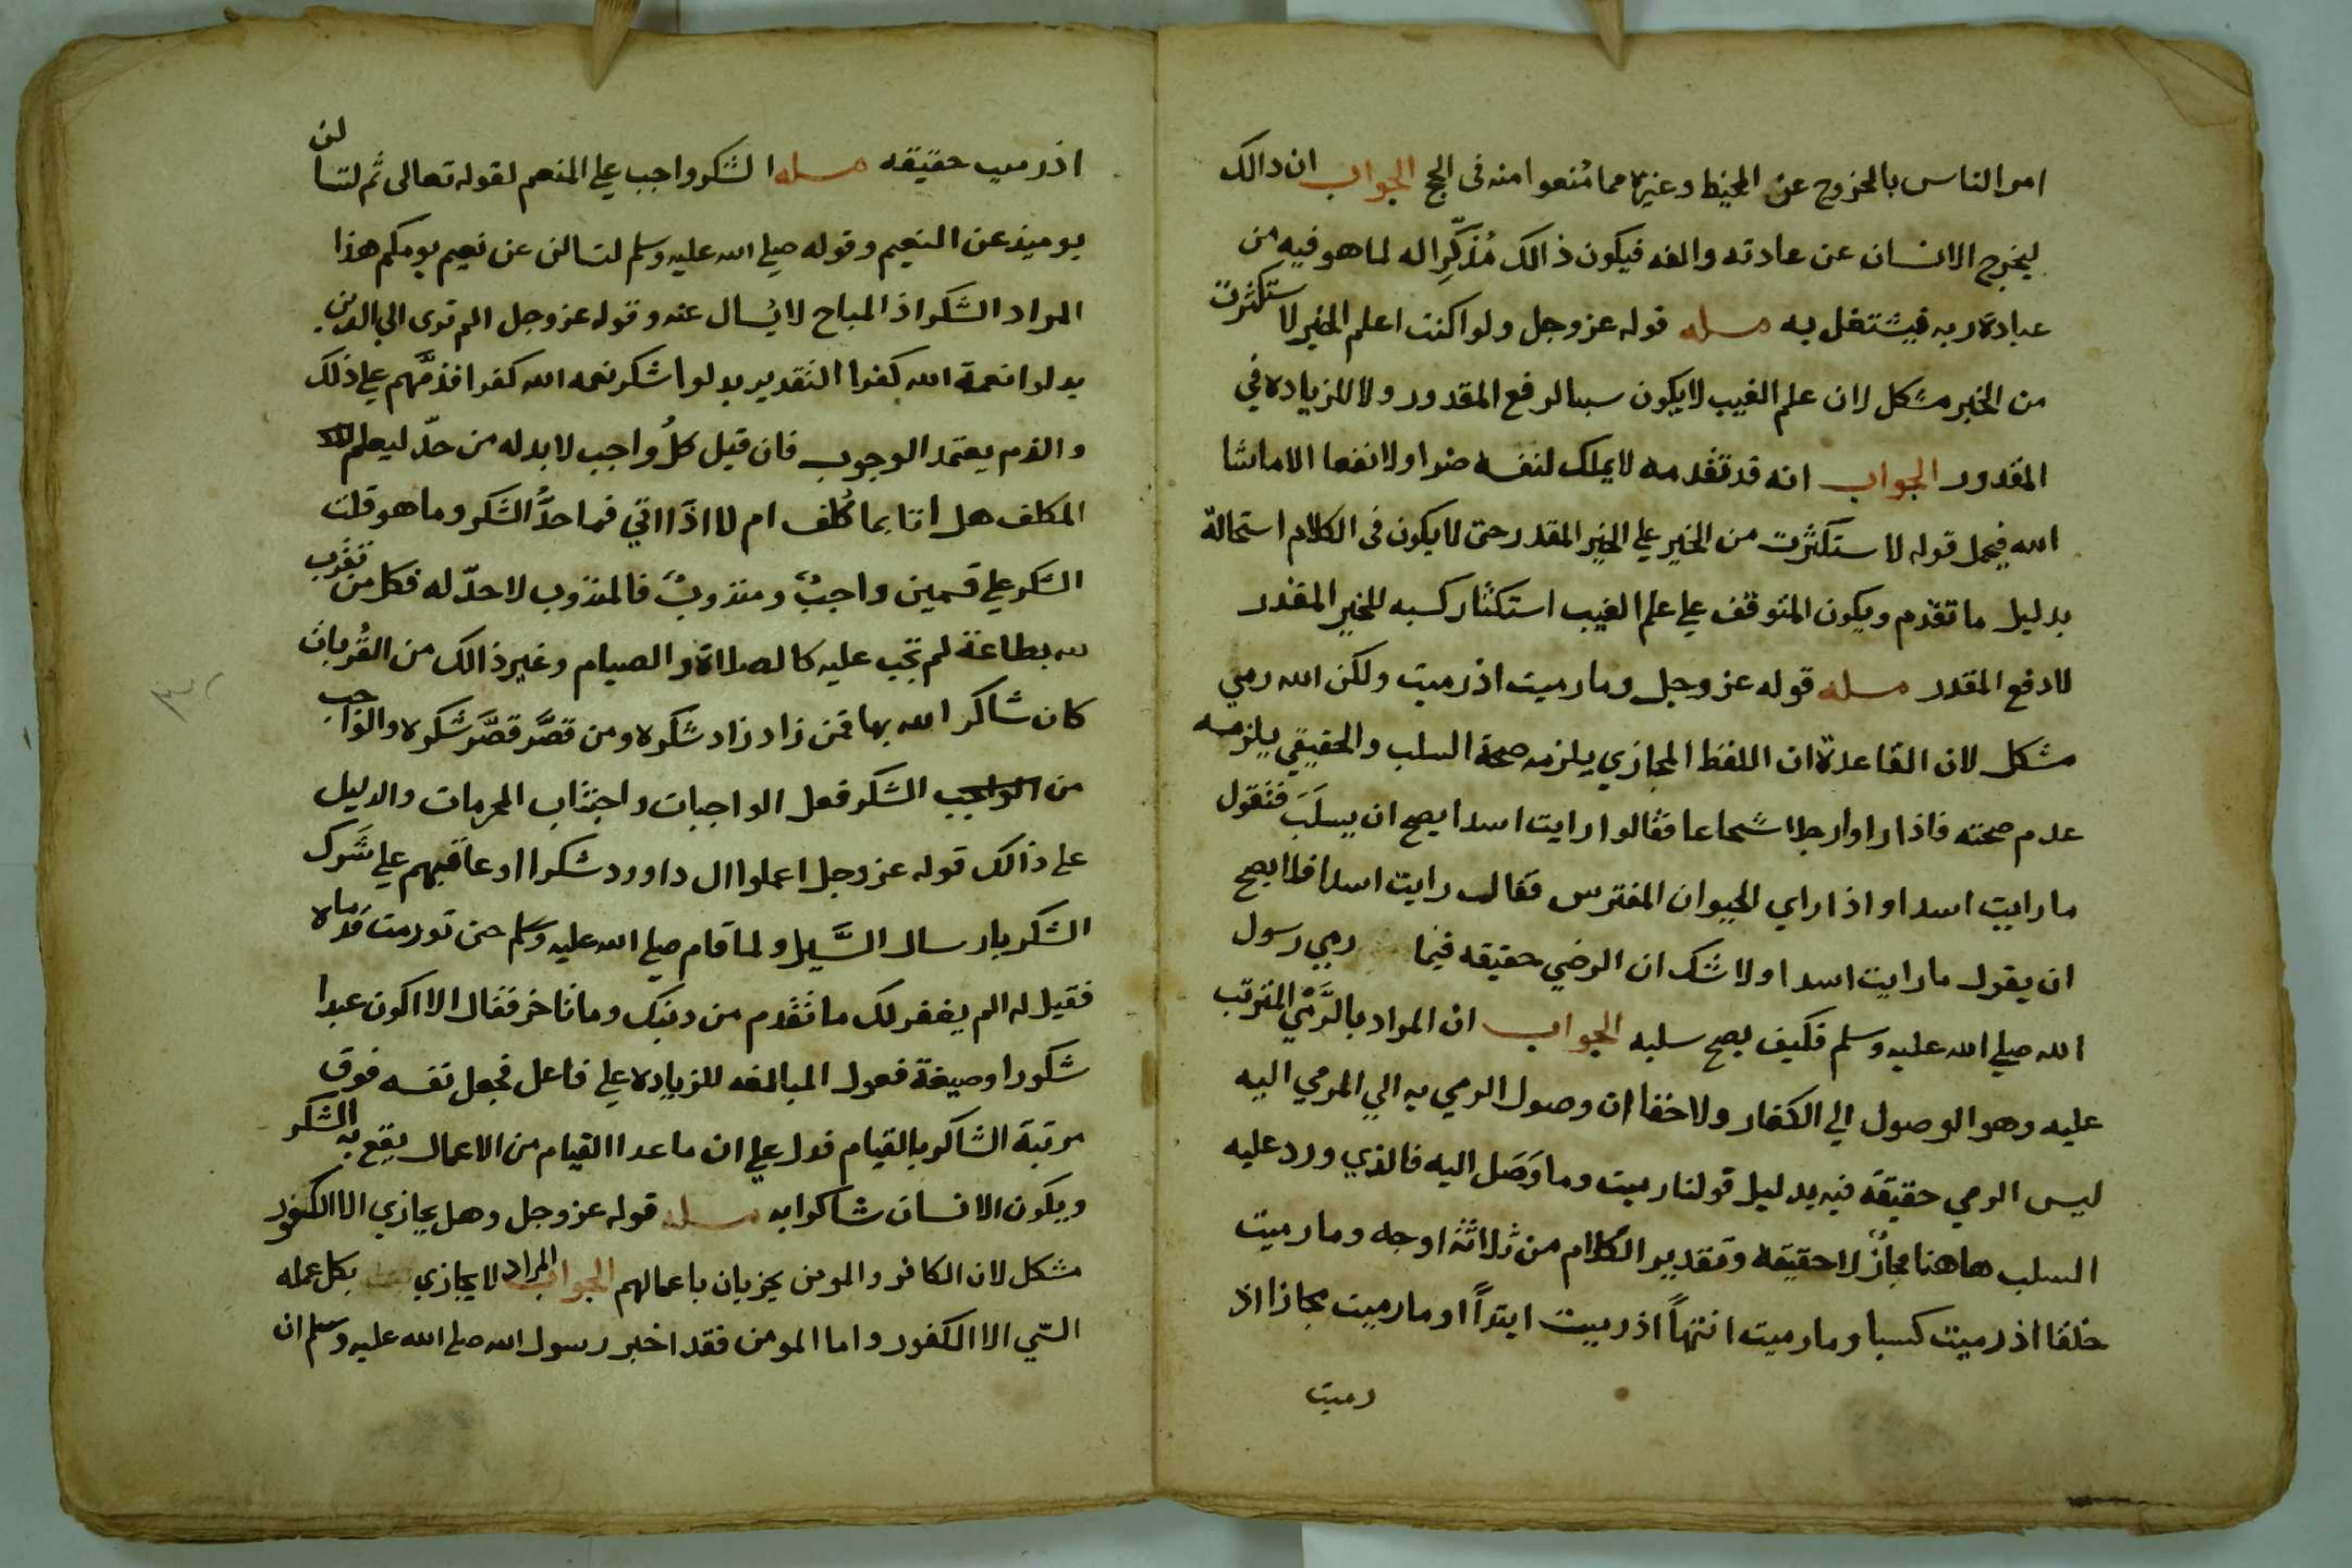 امر الناس بالخروج عن المخيط وغيره مما مُنعوا منه في الحج الجواب ان ذالك
ليخرج الانسان عن عادته والفه فيكون ذالك مُذكِّرا له لما هو فيه من
عبادة ربه فيشتغل به مسله قوله عز وجل ولو اكنت اعلم الغيب لاستكثرت
من الخير مشكل لان علم الغيب لا يكون سببا لرفع المقدور ولا للزياده في
المقدور الجواب انه قد تقدمه لا يملك لنفسه ضرا ولا نفعا الا ما شا
الله فيحمل قوله لاستكثرت من الخير علي الخير المقدر حتى لا يكون في الكلام استحالة
بدليل ما تقدم ويكون المتوقف علي علم الغيب استكثار كسبه للخير المقدر
لا دفع المقدر مسله قوله عز وجل وما رميت اذ رميت ولكن الله رمي
مشكل لان القاعدة ان اللفظ المجازي يلزمه صحة السلب والحقيقي يلزمه
عدم صحته فاذا راوا رجلا شجاعا فقالوا رايت اسدا يصح ان يسلَبَ فنقول
ما رايت اسدا واذا راي الحيوان المفترس فقال رايت اسدا فلا يصح
ان يقول ما رايت اسدا ولا شك ان الرمي حقيقه فيما رمي رسول
الله صلي الله عليه وسلم فكيف يصح سلبه الجواب ان المراد بالرَّمْي المترتب
عليه وهو الوصول الي الكفار ولا خفا ان وصول الرمي به الي المرمي اليه
ليس الرمي حقيقة فيه بدليل قولنا رميت وما وَصَل اليه فالذي ورد عليه
السلب هاهنا مجازٌ لا حقيقة وتقدير الكلام من ثلاثة اوجه وما رميت
خلقا اذ رميت كسبا وما رميت انتهاً اذ رميت ابتداً او ما رميت مجازا اذ
رميت
اذ رميت حقيقه مسله الشكر واجب علي المنعم لقوله تعالى ثم لتسالن
يوميذ عن النعيم وقوله صلي الله عليه وسلم لتسالن عن نعيم يومكم هذا
المراد الشكر اذ المباح لا يُسال عنه وقوله عز وجل الم ترى الي الذين
بدلوا نعمة الله كفرا التقدير بدلوا شكر نعمه الله كفرا فذمَّهم علي ذلك
والذم يعتمد الوجوب فان قيل كلُ واجب لا بد له من حدّ ليعلم
المكلف هل اتا بما كُلف ام لا اذًا اتي فما حدُّ الشكر وما هو قلت
الشكر علي قسمين واجبٌ ومندوبٌ فالمندوب لا حدّ له فكل من تقرب
لله بطاعة لم تجب عليه كالصلاة والصيام وغير ذالك من القُربات
كان شاكر الله بها فمن زاد زاد شكره ومن قصَّر قصَّر شكره والواجب
من الواجب الشكر فعل الواجبات واجتناب المحرمات والدليل
علي ذالك قوله عز وجل اعملوا ال داوود شكرا او عاقبهم علي شَرك
الشكر بارسال السَّيل ولما قام صلي الله عليه وسلم حتى تورمت قدماه
فقيل له الم يغفر لك ما تقدم من ذنبك وما تاخر فقال الا اكون عبدا
شكورا وصيغة فعول المبالغه للزياده علي فاعل فجعل نفسه فوق
مرتبة الشاكر بالقيام فدل علي ان ما عدا القيام من الاعمال يقع به الشكر
ويكون الانسان شاكرا به مسله قوله عز وجل وهل يجازي الا الكفور
مشكل لان الكافر والمومن يجزيان باعمالهم الجواب المراد لا يجازي بكل عمله
السّي الا الكفور واما المومن فقد اخبر رسول الله صلي الله عليه وسلم ان